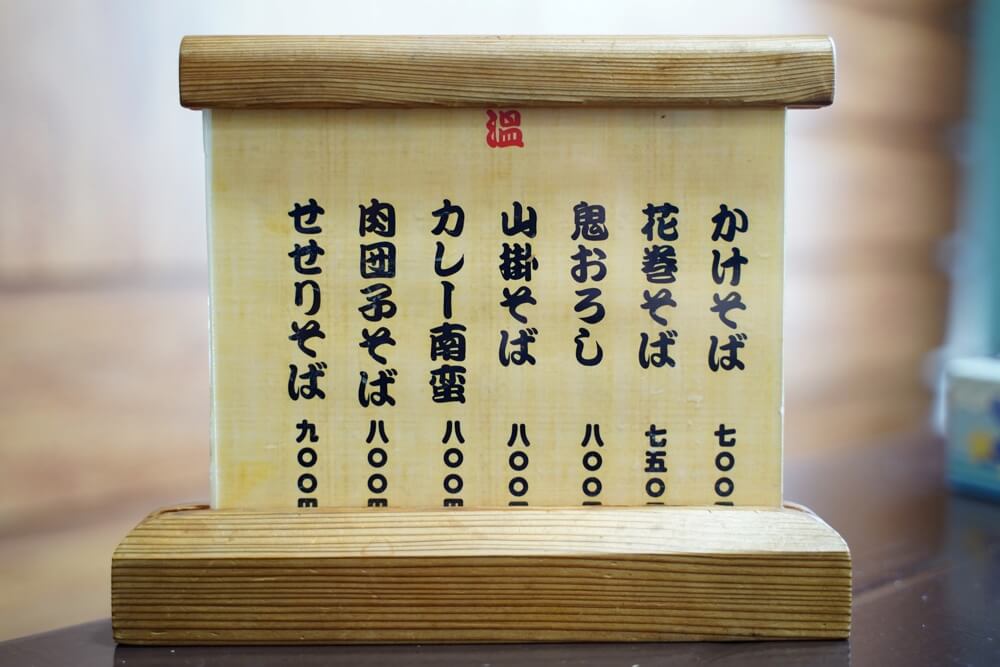 温
かけそば 七〇〇円
花巻そば 七五〇円
鬼おろし 八〇〇円
山掛そば 八〇〇円
カレー南蛮 八〇〇円
肉団子そば 八〇〇円
せせりそば 九〇〇円